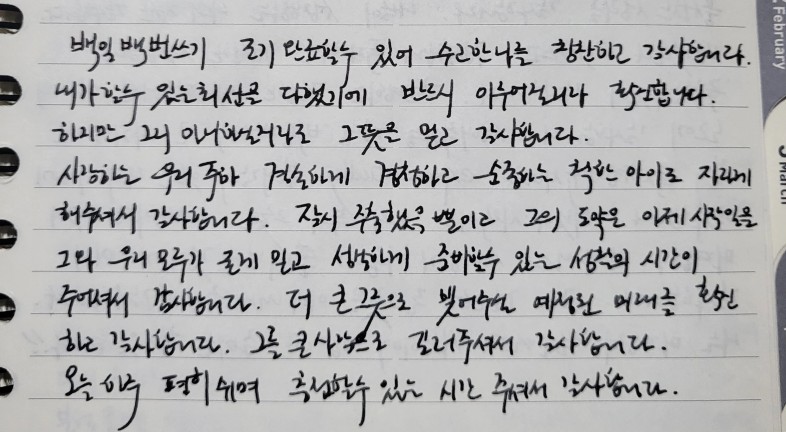 백일 백번쓰기 조기 완료할수 있어 수고한 나를 칭찬하고 감사합니다.
내가 할수 있는 최선을 다했기에 반드시 이루어지리라 확신합니다.
하지만 그의 아니하실지라도 그 뜻을 믿고 감사합니다.
사랑하는 우리 주하 겸손하게 경청하고 순종하는 착한 아이로 자라게
해주셔서 감사합니다. 잠시 주춤했을 뿐이고 그의 도약은 이제 시작임을
그와 우리 모두가 굳게 믿고 성실하게 준비할수 있는 성찰의 시간이
주어져서 감사합니다. 더 큰 그릇으로 빚어주실 예정된 미래를 확신
하고 감사합니다. 그를 큰 사람으로 길러주셔서 감사합니다.
오늘 하루 편히 쉬며 충전할수 있는 시간 주셔서 감사합니다.
February
March